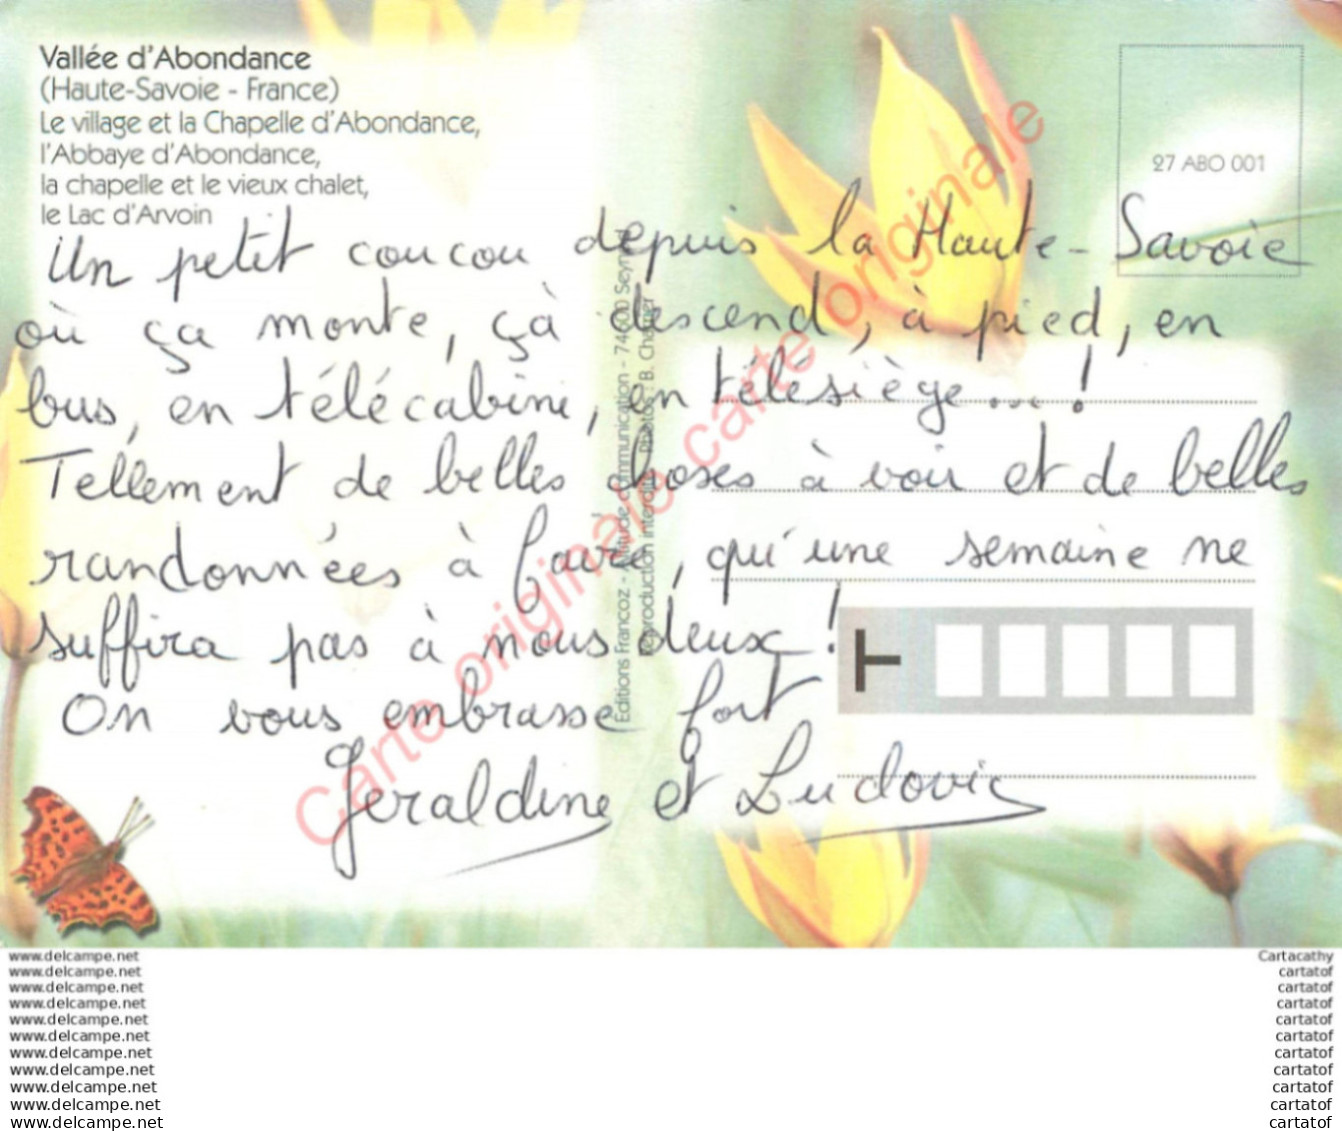 Vallée d'Abondance
(Haute-Savoie - France)
Le village et la Chapelle d'Abondance,
l'Abbaye d'Abondance,
la chapelle et le vieux chalet,
le Lac d'Arvoin
27 ABO 001
Un petit coucou depuis la Haute-Savoie
où ça monte, çà descend, à pied, en
bus, en télécabine, en télésiège...!
Tellement de belles choses à voir et de belles
randonnées à faire, qu'une semaine ne
suffira pas à nous deux!
On vous embrasse fort
Geraldine et Ludovic
Editions Francoz - Altitude Communication - 74600 Seynod
Reproduction interdite Photos B. 
T
Carte originale carte originale
www.delcampe.net
www.delcampe.net
www.delcampe.net
www.delcampe.net
www.delcampe.net
www.delcampe.net
www.delcampe.net
www.delcampe.net
www.delcampe.net
www.delcampe.net
www.delcampe.net
Cartacathy
cartatof
cartatof
cartatof
cartatof
cartatof
cartatof
cartatof
cartatof
cartatof
cartatof